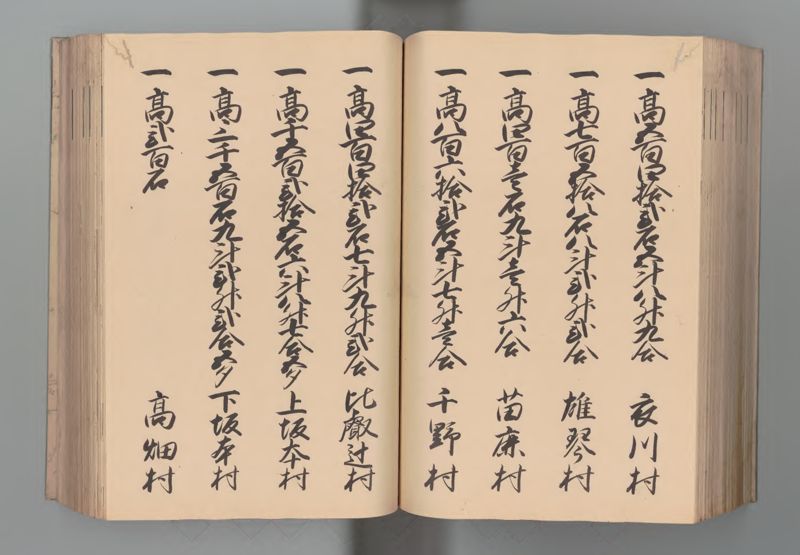 一高五百四拾弐石五斗八升九合 衣川村
一高七百五拾八石八斗弐升弐合 雄琴村
一高四百壱石九斗壱升六合 苗鹿村
一高八百六拾弐石五斗七升壱合 千野村
一高四百四拾弐石七斗九升弐合 比叡辻村
一高千五百弐拾五石六斗八升七合五夕 上坂本村
一高二千五百石九斗弐升弐合五夕 下坂本村
一高弐百石 高畑村